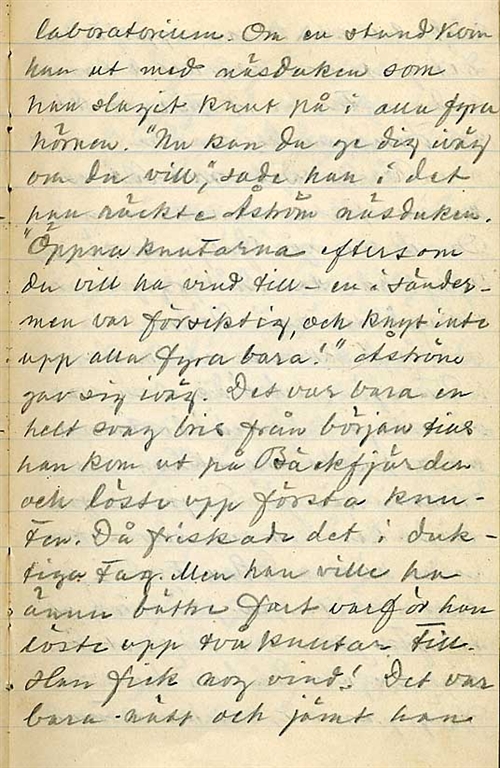 laboratorium. Om en stund kom
han ut med näsduken som
han slagit knut på i alla fyra
hörnen. "Nu kan du ge dig iväg
om du vill", sade han i det
han räckte Åström näsduken.
"Öppna knutarna eftersom
du vill ha vind till - en i sänder -
men var försiktig, och knyt inte
upp alla fyra bara!" Åström
gav sig iväg. Det var bara en
helt svag bris från början tills
han kom ut på Bäckfjärden
och löste upp första knu-
ten. Då friskade det i duk-
tiga tag. Men han ville ha
ännu bättre fart varför han
löste upp två knutar till.
Han fick nog vind! Det var
bara nätt och jämt han